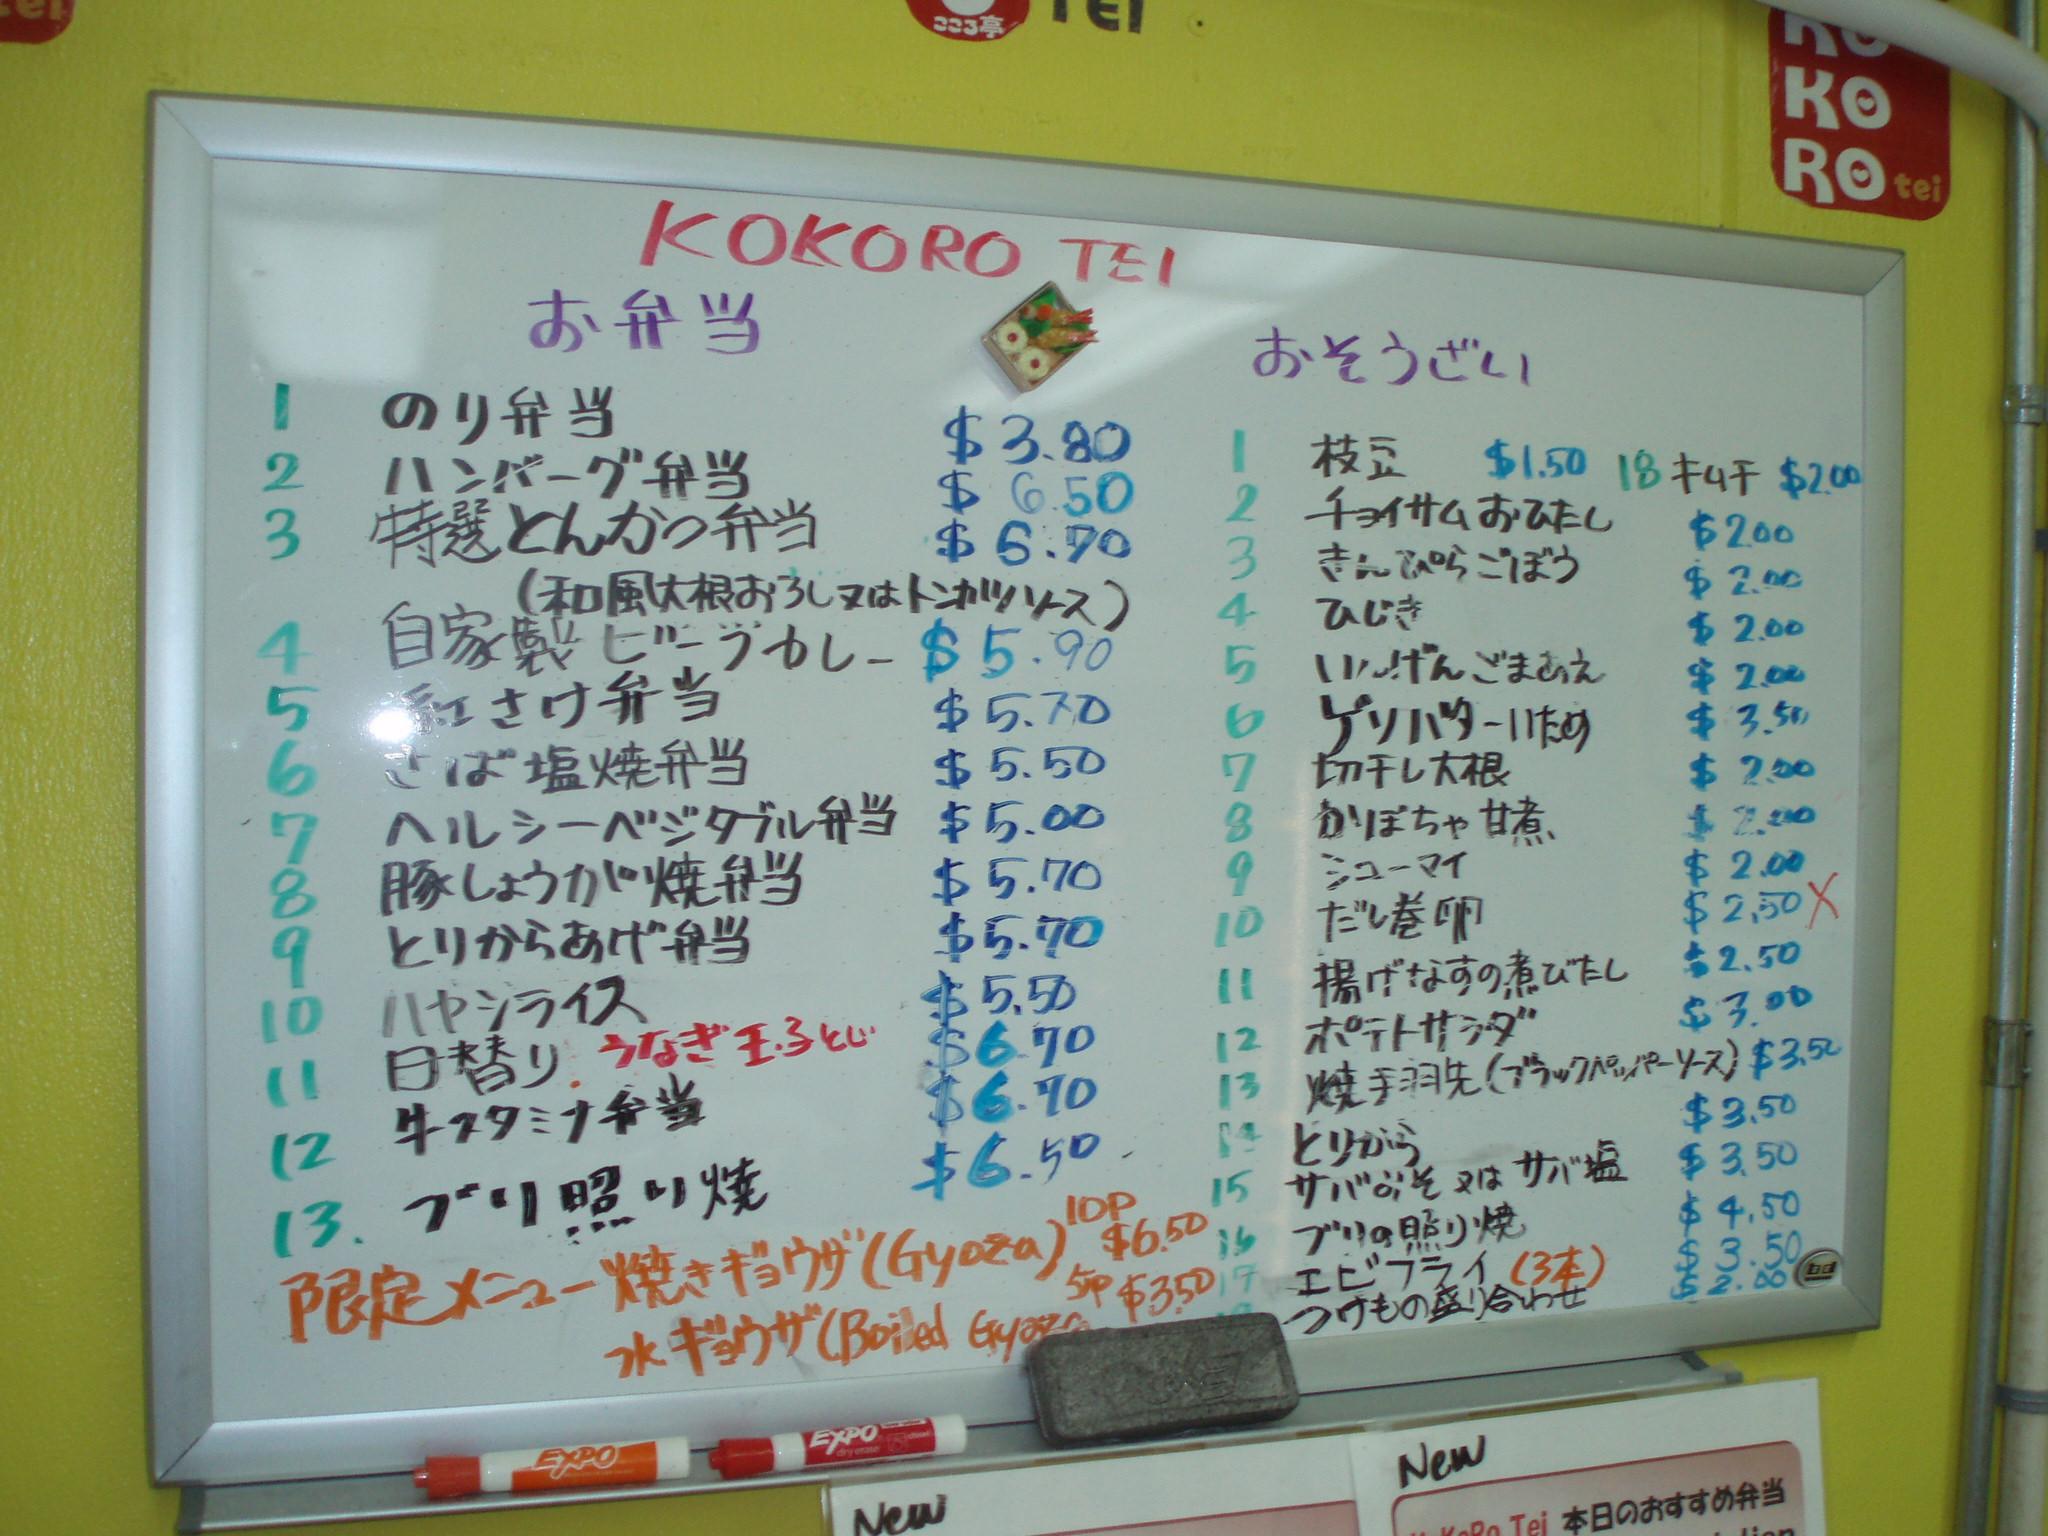 tei
こころ亭
TEI
KO
KO
RO tei
KOKORO TEI
お弁当
1 のり弁当 $3.80
2 ハンバーグ弁当 $6.50
3 特選とんかつ弁当 $6.70
(和風大根おろし又はトンカツソース)
4 自家製ビーフカレー $5.90
5 紅さけ弁当 $5.70
6 さば塩焼弁当 $5.50
7 ヘルシーベジタブル弁当 $5.00
8 豚しょうが焼弁当 $5.70
9 とりからあげ弁当 $5.70
10 ハヤシライス $5.50
11 日替り うなぎ玉子とじ $6.70
12 牛スタミナ弁当 $6.70
13. ブリ照り焼 $6.50
限定メニュー 焼きギョウザ(Gyoza) 10P $6.50
水ギョウザ(Boiled Gyoza 5P $3.50
おそうざい
1 枝豆 $1.50 18 キムチ $2.00
2 チョイサムおひたし $2.00
3 きんぴらごぼう $2.00
4 ひじき $2.00
5 いんげんごまあえ $2.00
6 ゲソバターいため $3.50
7 切干し大根 $2.00
8 かぼちゃ甘煮 $2.00
9 シューマイ $2.00
10 だし巻卵 $2.50 X
11 揚げなすの煮びたし $2.50
12 ポテトサラダ $3.00
13 焼手羽先(ブラックペッパーソース) $3.50
14 とりから $3.50
15 サバみそ又はサバ塩 $3.50
16 ブリの照り焼 $4.50
17 エビフライ (3本) $3.50
つけもの盛り合わせ $2.00
EXPO
EXPO
dry erase
New
New
KoKoRo Tei 本日のおすすめ弁当